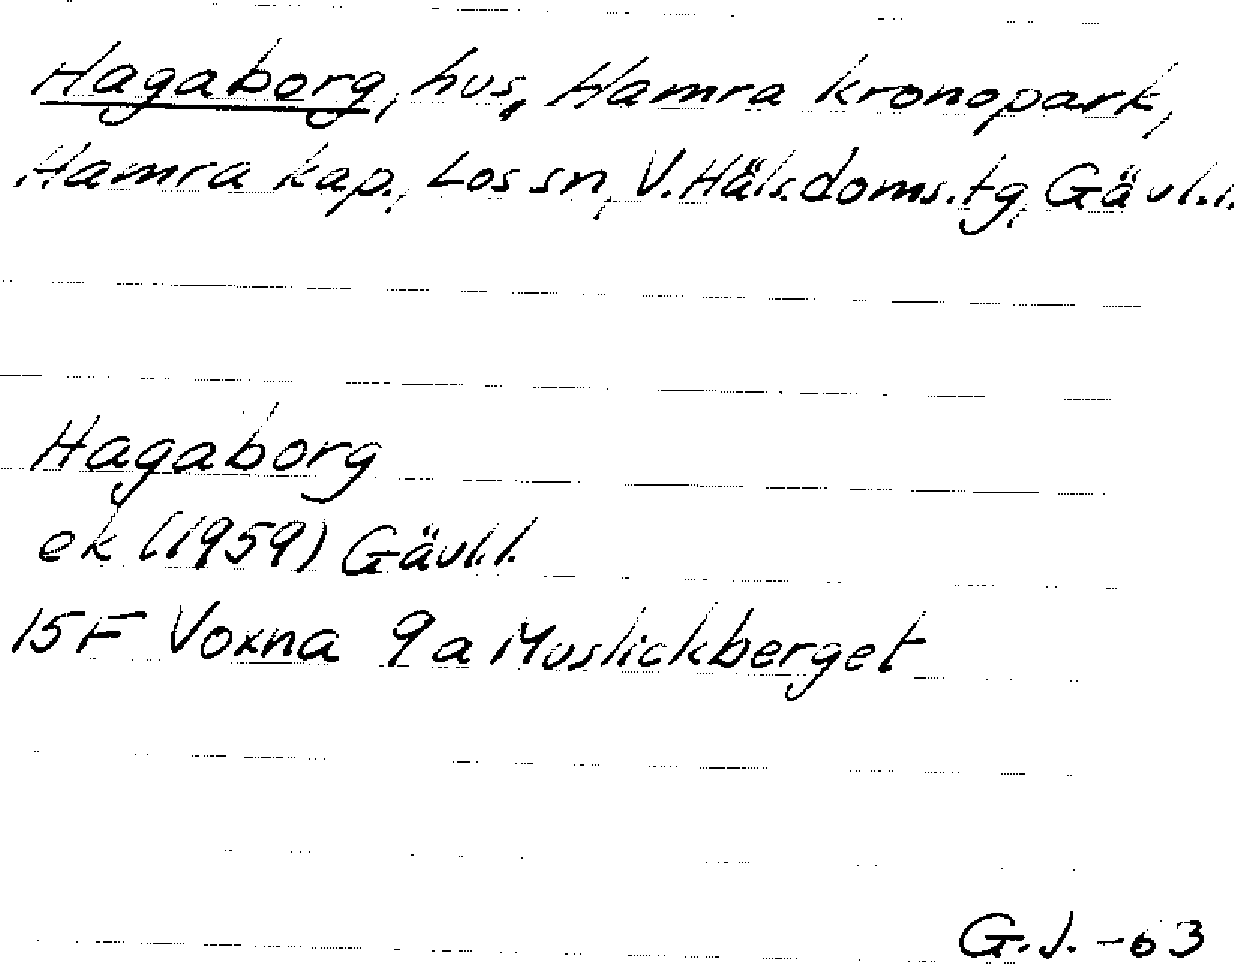 Hagaborg, hus, Hamra kronopark,
Hamra kap., Los sn, V. Häls. doms. tg, Gävl. l.
Hagaborg
ek (1959) Gävl. l.
15F Voxna 9a Muslickberget
G.J. -63